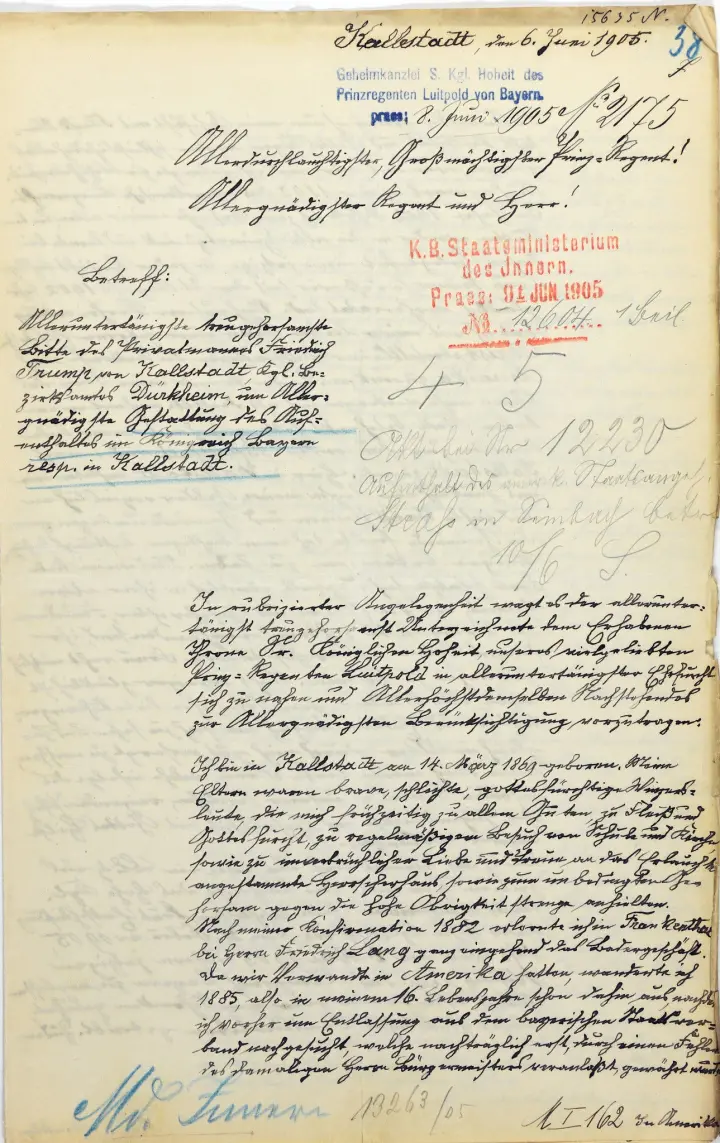 15675 N.
Kallstadt, den 6. Juni 1905.
38
Geheimkanzlei S. Kgl. Hoheit des
Prinzregenten Luitpold von Bayern.
praes: 8. Juni 1905 No 2175
Allerdurchlauchtigster, Großmächtigster Prinz-Regent!
Allergnädigster Regent und Herr!
K.B. Staatsministerium
des Innern.
Praes: 91 JUN 1905
No. 12604 1 Beil.
Betreff:
Alleruntertänigste treugehorsamste
Bitte des Privatmannes Friedrich
Trump von Kallstadt, Kgl. Be-
zirksamtes Dürkheim, um Aller-
gnädigste Gestattung des Auf-
enthaltes im Königreich Bayern
resp. in Kallstadt.
4 5
bei Nr 12230
Aufenthalt des amerik. Staatsangeh.
in Simbach betr.
10/6 S.
In rubrizierter Angelegenheit wagt es der allerunter-
tänigst treugehorsamst Unterzeichnete dem Erhabenen
Throne Sr. Königlichen Hoheit unseres vielgeliebten
Prinz-Regenten Luitpold in alleruntertänigster Ehrfurcht
sich zu nahen und Allerhöchstdemselben Nachstehendes
zur Allergnädigsten Berücksichtigung vorzutragen:
Ich bin in Kallstadt am 14. März 1869 geboren. Meine
Eltern waren brave, schlichte, gottesfürchtige Winzers-
leute, die mich frühzeitig zu allem Guten, zu Fleiß und
Gottesfurcht, zu regelmäßigem Besuch von Schule und Kirche,
sowie zu unverbrüchlicher Liebe und Treue an das Erlauchte
angestammte Herrscherhaus sowie zum unbedingten Ge-
horsam gegen die hohe Obrigkeit strenge anhielten.
Nach meiner Konfirmation 1882 erlernte ich in Frankenthal
bei Herrn Friedrich Lang ganz eingehend das Badergeschäft.
Da wir Verwandte in Amerika hatten, wanderte ich
1885, also in meinem 16. Lebensjahre schon dahin aus, nachdem
ich vorher um Entlassung aus dem bayerischen Staatsver-
band nachgesucht, welche nachträglich erst, durch einen Fehler
des damaligen Herrn Bürgermeisters veranlaßt, gewährt wurde.
Md. Innern 13263/05
M I 162 In Amerika